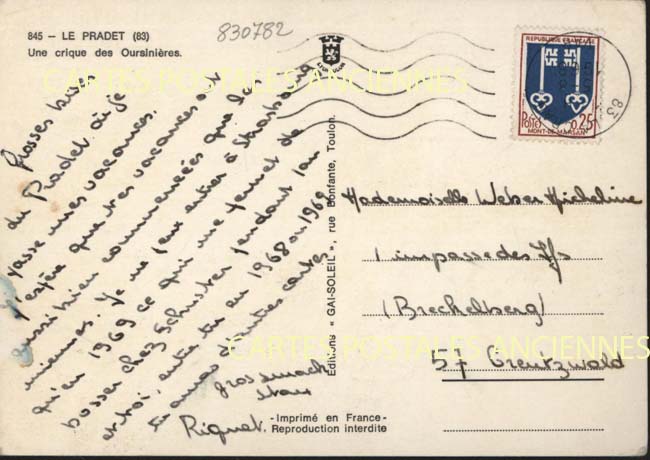 845 — LE PRADET (83)
Une crique des Oursinières.
830782
LE LION
REPUBLIQUE FRANÇAISE
POSTES 0,25F
MONT-DE-MARSAN
83
CARTES POSTALES ANCIENNES
Grosses bises
du Pradet où je
passe mes vacances.
J'espère que tes vacances ont
aussi bien commencées que les
miennes. Je ne peux entrer à Strasbourg
qu'en 1969 ce qui me permet de
bosser chez Schuster pendant 1 an
et toi, entre tu en 1968 ou 1969
tu auras d'autres cartes
gros
Riquet.
Editions " GAI-SOLEIL ", rue Bonfante, Toulon.
Mademoiselle Weber Micheline
1 impasse des Ifs
(Brechelberg)
57 Creutzwald
CARTES POSTALES ANCIENNES
-Imprimé en France-
Reproduction interdite